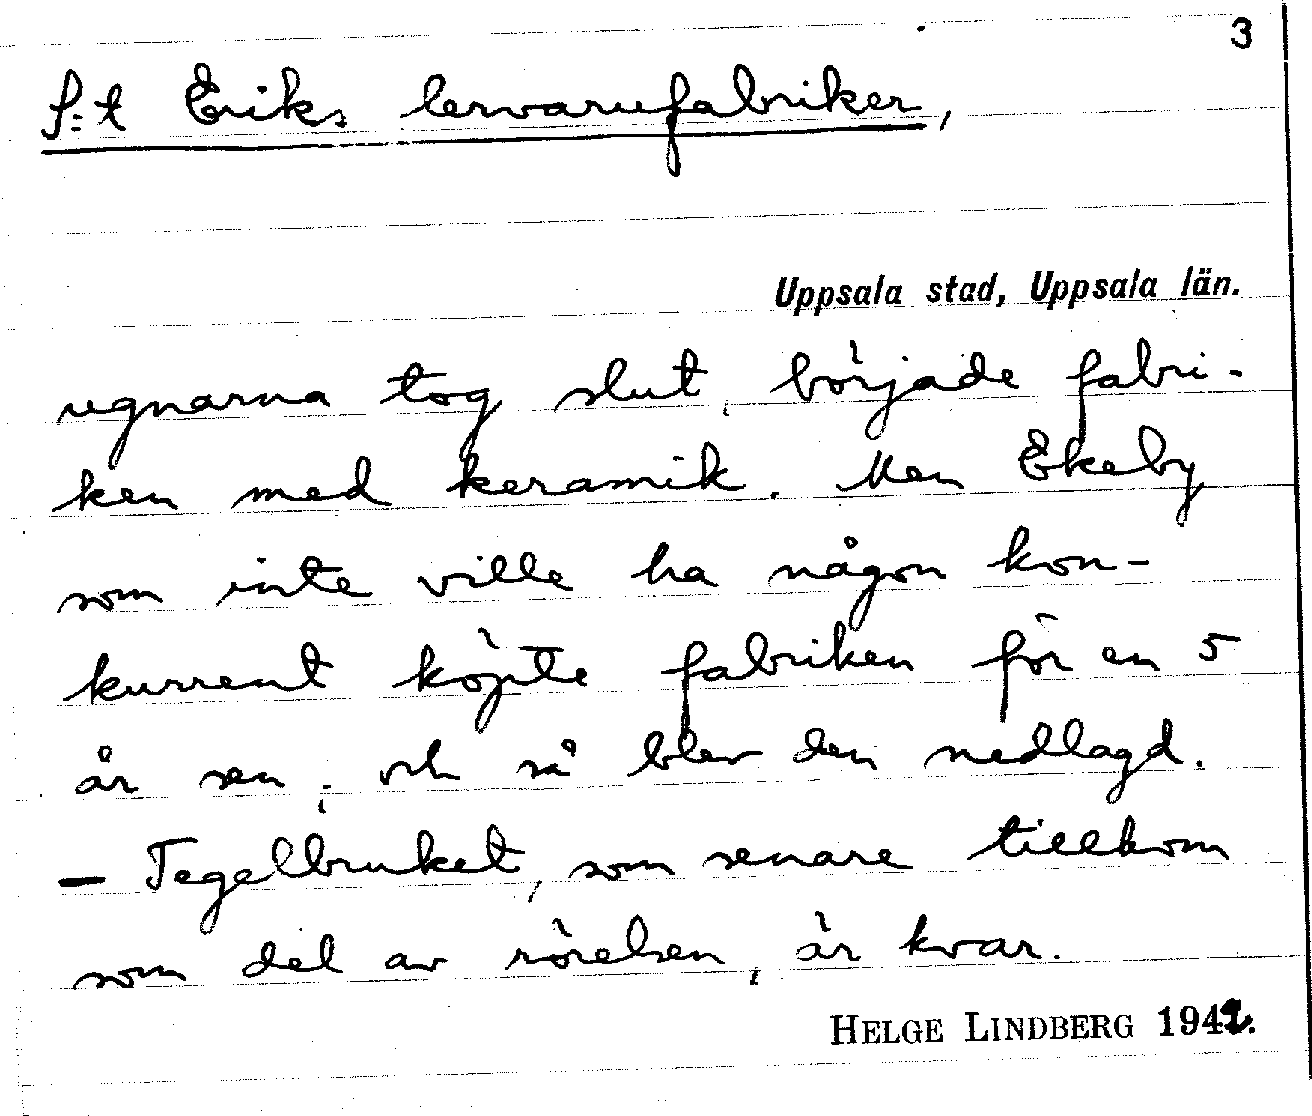 3
S:t Eriks lervarufabriker,
Uppsala stad, Uppsala län.
ugnarna tog slut, började fabri-
ken med keramik. Men Ekeby
som inte ville ha någon kon-
kurrent köpte fabriken för en 5
år sen, och så blev den nedlagd.
– Tegelbruket, som senare tillkom
som del av rörelsen, är kvar.
HELGE LINDBERG 1942.